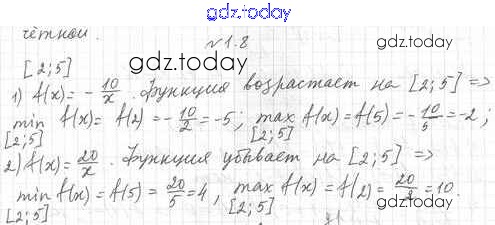 1.8
gdz.today
чётной.
№1.8
gdz.today
gdz.today
[2;5]
1) f(x) = - 10/x . Функция возрастает на [2;5] =>
min f(x) = f(2) = - 10/2 = -5; max f(x) = f(5) = - 10/5 = -2;
[2;5] [2;5]
2) f(x) = 20/x . Функция убывает на [2;5] =>
min f(x) = f(5) = 20/5 = 4, max f(x) = f(2) = 20/2 = 10.
[2;5] [2;5]
gdz.today